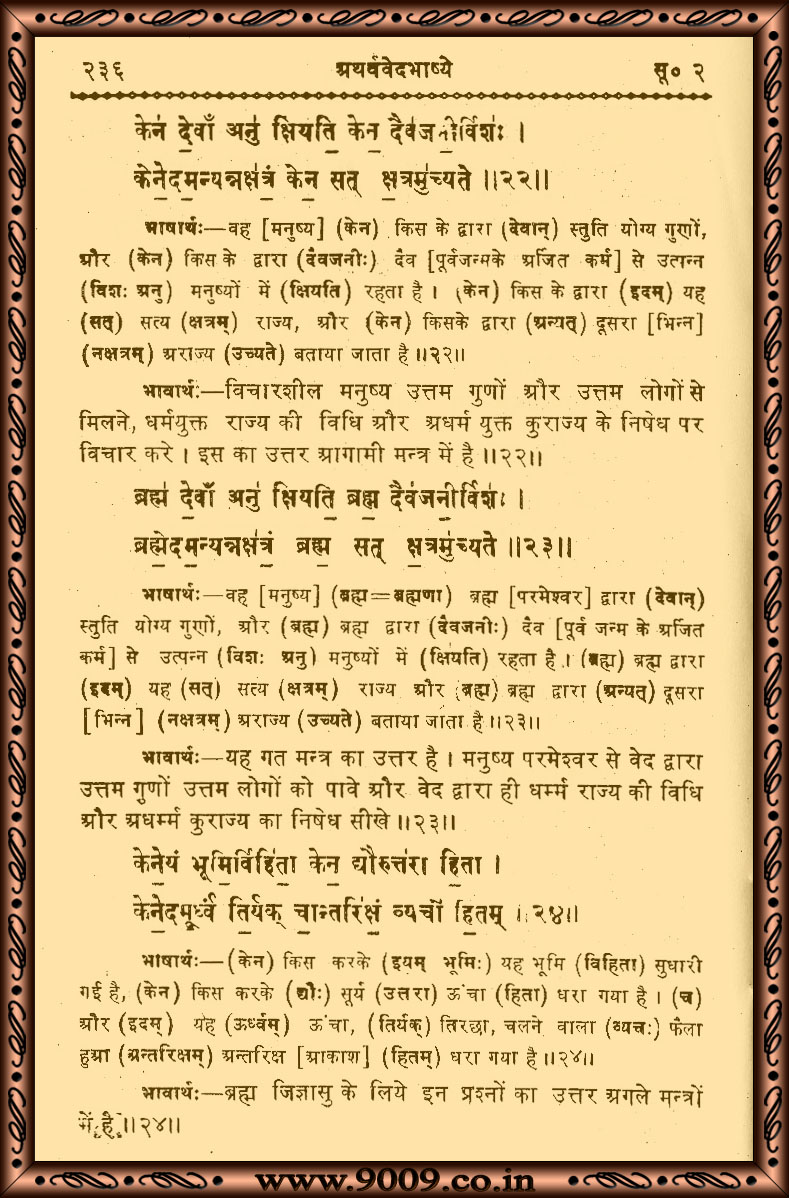 २३६ अथर्ववेदभाष्ये सू० २
केन॑ दे॒वाँ अनु॑ क्षियति॒ केन॒ दैव॑जनी॒र्विशः॑ ।
केने॒दम॒न्यन्नक्ष॑त्रं॒ केन॒ सत् क्ष॒त्रमु॑च्यते ॥२२॥
भाषार्थः—वह [मनुष्य] (केन) किस के द्वारा (देवान्) स्तुति योग्य गुणों,
और (केन) किस के द्वारा (दैवजनीः) दैव [पूर्वजन्मके अर्जित कर्म] से उत्पन्न
(विशः अनु) मनुष्यों में (क्षियति) रहता है । (केन) किस के द्वारा (इदम्) यह
(सत्) सत्य (क्षत्रम्) राज्य, और (केन) किसके द्वारा (अन्यत्) दूसरा [भिन्न]
(नक्षत्रम्) अराज्य (उच्यते) बताया जाता है ॥२२॥
भावार्थः—विचारशील मनुष्य उत्तम गुणों और उत्तम लोगों से
मिलने, धर्मयुक्त राज्य की विधि और अधर्म युक्त कुराज्य के निषेध पर
विचार करे । इस का उत्तर आगामी मन्त्र में है ॥२२॥
ब्रह्म॑ दे॒वाँ अनु॑ क्षियति॒ ब्रह्म॒ दैव॑जनी॒र्विशः॑ ।
ब्रह्मे॒दम॒न्यन्नक्ष॑त्रं॒ ब्रह्म॒ सत् क्ष॒त्रमु॑च्यते ॥२३॥
भाषार्थः—वह [मनुष्य] (ब्रह्म=ब्रह्मणा) ब्रह्म [परमेश्वर] द्वारा (देवान्)
स्तुति योग्य गुणों, और (ब्रह्म) ब्रह्म द्वारा (दैवजनीः) दैव [पूर्व जन्म के अर्जित
कर्म] से उत्पन्न (विशः अनु) मनुष्यों में (क्षियति) रहता है । (ब्रह्म) ब्रह्म द्वारा
(इदम्) यह (सत्) सत्य (क्षत्रम्) राज्य और (ब्रह्म) ब्रह्म द्वारा (अन्यत्) दूसरा
[भिन्न] (नक्षत्रम्) अराज्य (उच्यते) बताया जाता है ॥२३॥
भावार्थः—यह गत मन्त्र का उत्तर है । मनुष्य परमेश्वर से वेद द्वारा
उत्तम गुणों उत्तम लोगों को पावे और वेद द्वारा ही धर्म्म राज्य की विधि
और अधर्म्म कुराज्य का निषेध सीखे ॥२३॥
केने॒यं भूमि॒र्विहि॑ता॒ केन॒ द्यौरुत्त॑रा हि॒ता ।
केने॒दमू॒र्ध्वं ति॒र्यक् चा॒न्तरि॑क्षं॒ व्यचो॑ हि॒तम् ॥२४॥
भाषार्थः—(केन) किस करके (इयम् भूमिः) यह भूमि (विहिता) सुधारी
गई है, (केन) किस करके (द्यौः) सूर्य (उत्तरा) ऊंचा (हिता) धरा गया है । (च)
और (इदम्) यह (ऊर्ध्वम्) ऊंचा, (तिर्यक्) तिरछा, चलने वाला (व्यचः) फैला
हुआ (अन्तरिक्षम्) अन्तरिक्ष [आकाश] (हितम्) धरा गया है ॥२४॥
भावार्थः—ब्रह्म जिज्ञासु के लिये इन प्रश्नों का उत्तर अगले मन्त्रों
में है ॥२४॥
www.9009.co.in